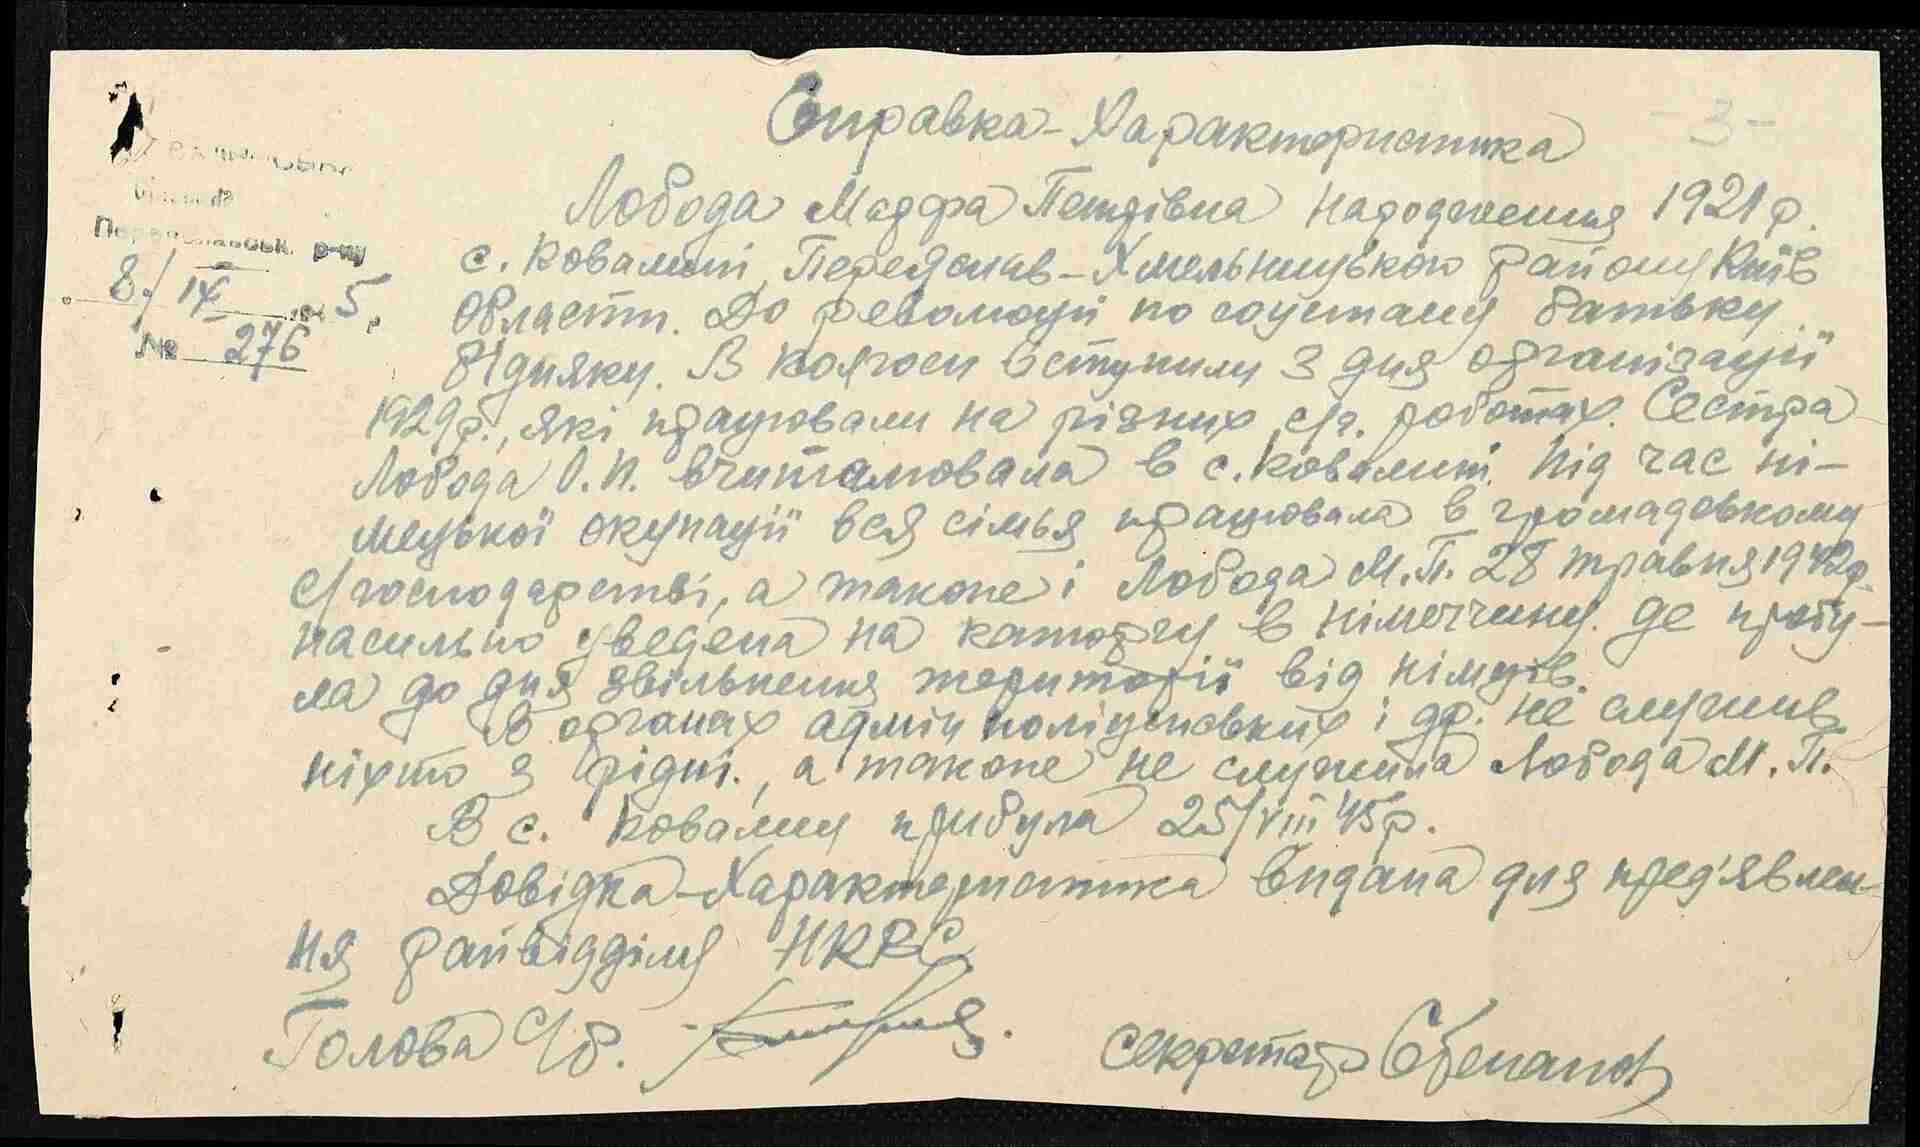 Справка-Характеристика
- 3 -
Переяславськ. р-ну
8/IX 1945 р
№ 276
Лобода Марфа Петрівна народження 1921 р.
с. Ковалині, Переяслав-Хмельницького району Київ
області. До революції по соцстану батьку
бідняку. В колгосп вступили з дня організації
1929р., які працювали на різних с/г. роботах. Сестра
Лобода О.П. вчителювала в с. Ковалині. Під час ні-
мецької окупації вся сімья працювала в громадському
с/господарстві, а також і Лобода М.П. 28 травня 1942р.
насильно уведена на каторгу в німеччину. де пробу-
ла до дня звільнення території від німців.
В органах адмін поліцейських і др. не служив
ніхто з рідні., а також не служила Лобода М.П.
В с. Ковалин прибула 25/VIII 45р.
Довідка-Характеристика видана для пред'явлен-
ня райвідділу НКВС
Голова с/р.
секретар